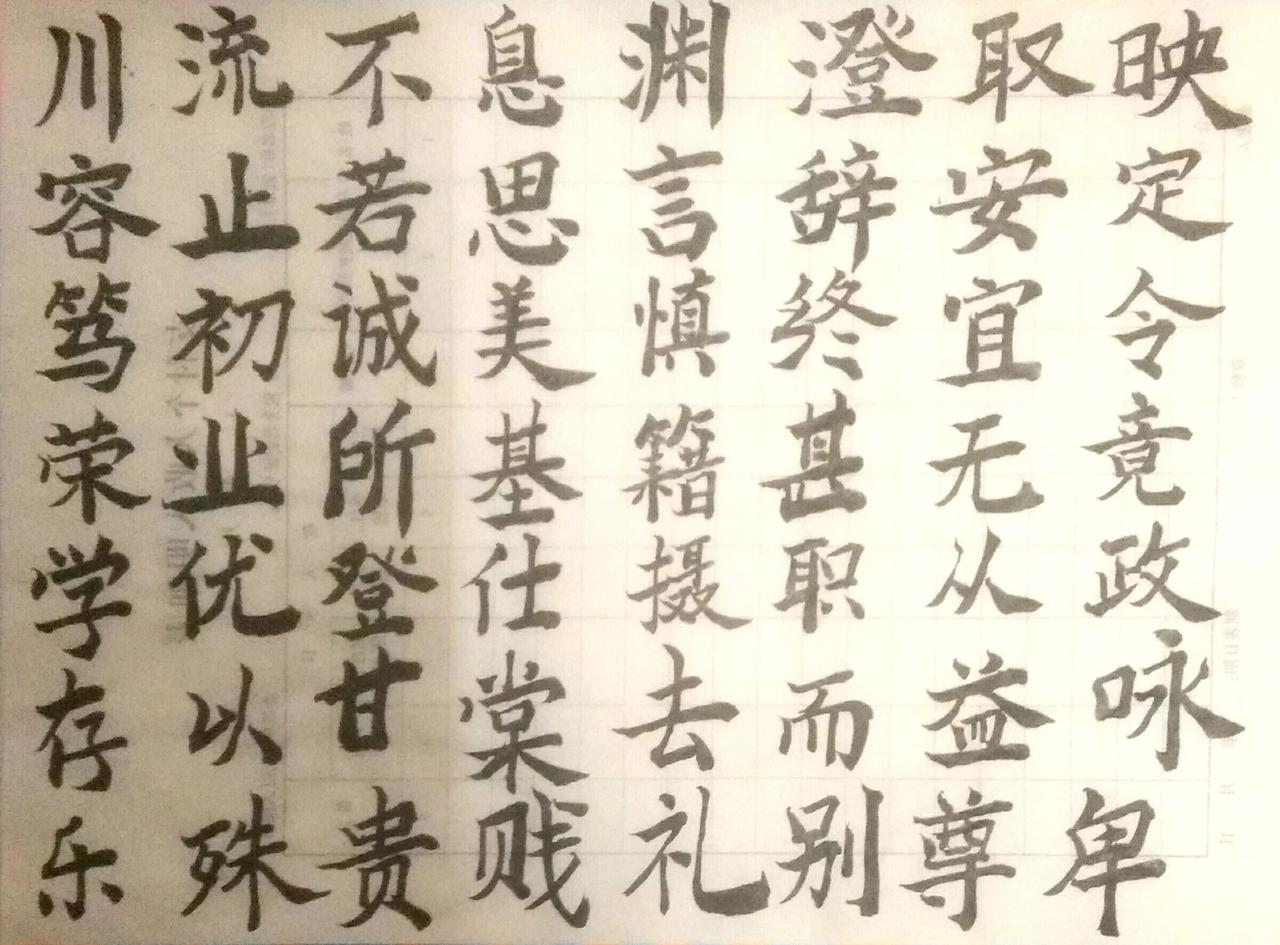 川流不息渊澄取映
容止若思言辞安定
笃初诚美慎终宜令
荣业所基籍甚无竟
学优登仕摄职从政
存以甘棠去而益咏
乐殊贵贱礼别尊卑